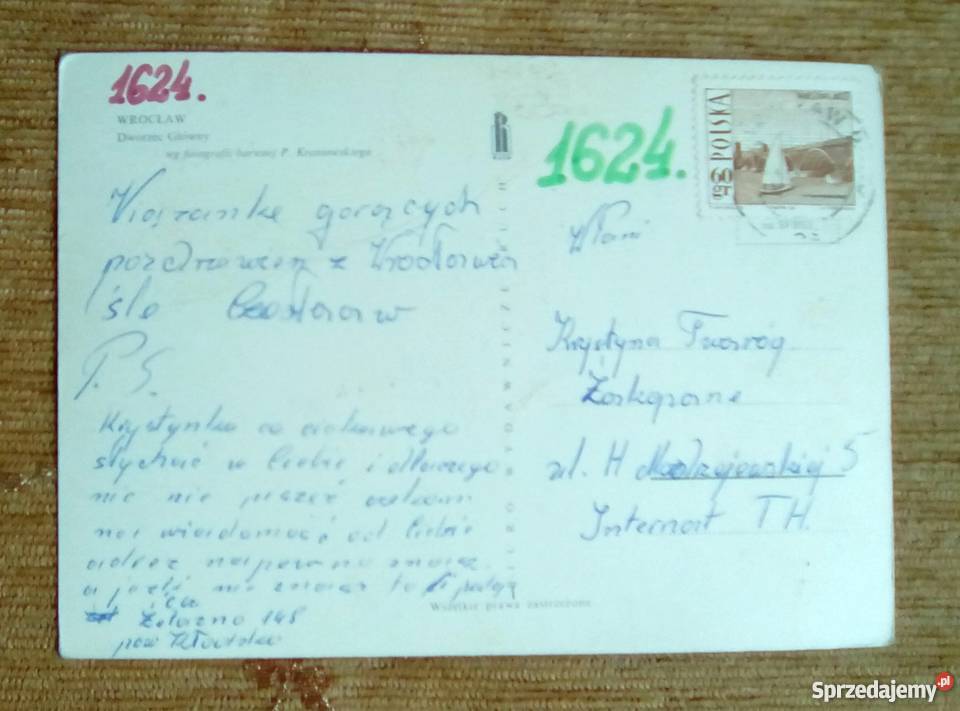 1624.
WROCŁAW
Dworzec Główny
wg fotografii barwnej P. Krassowskiego
Wiązankę gorących
pozdrowień z Wrocławia
śle
P.S.
Krystynko co ciekawego
słychać u Ciebie i dlaczego
nic nie piszesz czekam
na wiadomość od Ciebie
adres napewno znasz
a jeśli nie znasz to Ci podaję
Żelazno 148
pow Kłodzko
1624.
POLSKA
60 gr
W Pani
Krystyna Twaróg
Zakopane
ul. H Modrzejewskiej 5
Internat T H.
Wszelkie prawa zastrzeżone
Sprzedajemy.pl